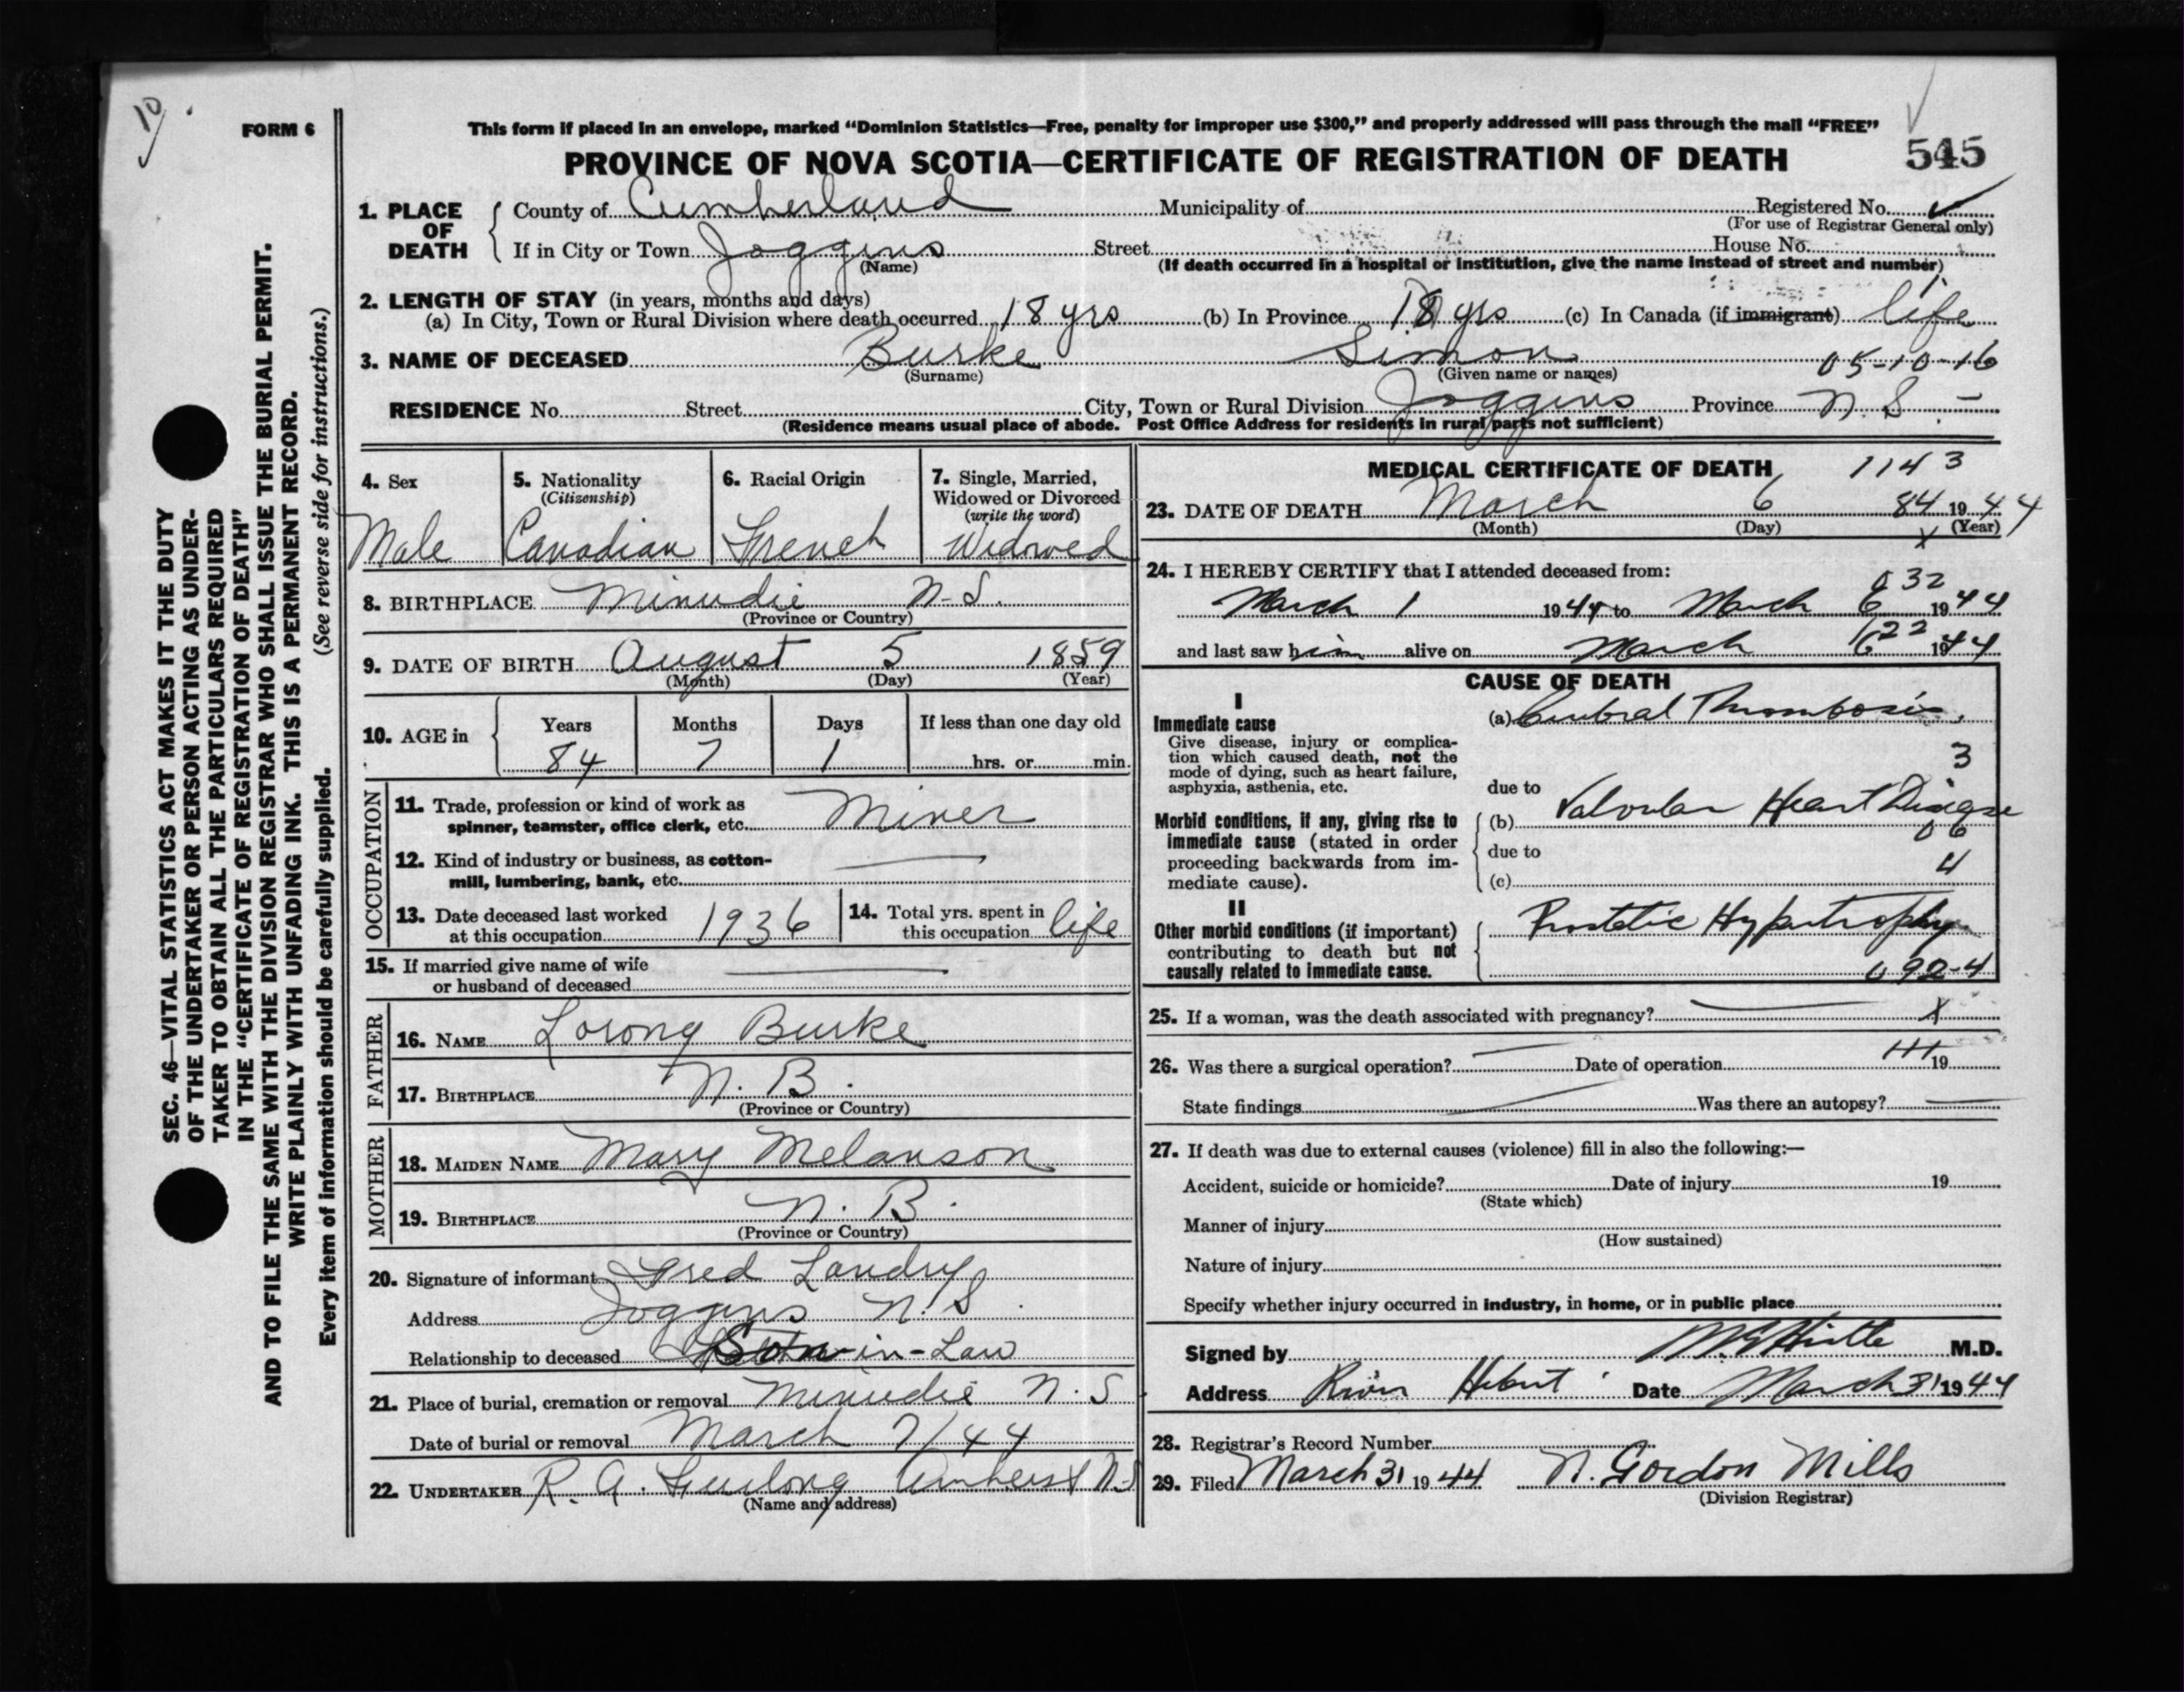 10
FORM 6
This form if placed in an envelope, marked "Dominion Statistics—Free, penalty for improper use $300," and properly addressed will pass through the mail "FREE"
PROVINCE OF NOVA SCOTIA—CERTIFICATE OF REGISTRATION OF DEATH
545
1. PLACE OF DEATH
County of Cumberland Municipality of Registered No.
(For use of Registrar General only)
If in City or Town Joggins Street House No.
(Name) (If death occurred in a hospital or institution, give the name instead of street and number)
2. LENGTH OF STAY (in years, months and days)
(a) In City, Town or Rural Division where death occurred 18 yrs (b) In Province 18 yrs (c) In Canada (if immigrant) life
3. NAME OF DECEASED Burke Simon 05-10-16
(Surname) (Given name or names)
RESIDENCE No. Street City, Town or Rural Division Joggins Province N. S. —
(Residence means usual place of abode. Post Office Address for residents in rural parts not sufficient)
SEC. 46—VITAL STATISTICS ACT MAKES IT THE DUTY
OF THE UNDERTAKER OR PERSON ACTING AS UNDER-
TAKER TO OBTAIN ALL THE PARTICULARS REQUIRED
IN THE "CERTIFICATE OF REGISTRATION OF DEATH"
AND TO FILE THE SAME WITH THE DIVISION REGISTRAR WHO SHALL ISSUE THE BURIAL PERMIT.
WRITE PLAINLY WITH UNFADING INK. THIS IS A PERMANENT RECORD.
Every item of information should be carefully supplied. (See reverse side for instructions.)
4. Sex
Male
5. Nationality
(Citizenship)
Canadian
6. Racial Origin
French
7. Single, Married,
Widowed or Divorced
(write the word)
Widowed
8. BIRTHPLACE Minudie N.S.
(Province or Country)
9. DATE OF BIRTH August 5 1859
(Month) (Day) (Year)
10. AGE in
Years Months Days If less than one day old
84 7 1 hrs. or min.
OCCUPATION
11. Trade, profession or kind of work as
spinner, teamster, office clerk, etc. Miner
12. Kind of industry or business, as cotton-
mill, lumbering, bank, etc.
13. Date deceased last worked
at this occupation 1936
14. Total yrs. spent in
this occupation life
15. If married give name of wife
or husband of deceased
FATHER
16. NAME Lorong Burke
17. BIRTHPLACE N. B.
(Province or Country)
MOTHER
18. MAIDEN NAME Mary Melanson
19. BIRTHPLACE N. B.
(Province or Country)
20. Signature of informant Fred Landry
Address Joggins N. S.
Relationship to deceased Son-in-Law
21. Place of burial, cremation or removal Minudie N. S
Date of burial or removal March 7/44
22. UNDERTAKER R. A. Furlong Amherst N.S
(Name and address)
MEDICAL CERTIFICATE OF DEATH 1143
23. DATE OF DEATH March 6 84 1944
(Month) (Day) (Year)
x
24. I HEREBY CERTIFY that I attended deceased from:
032
March 1 1944 to March 6 1944
622
and last saw him alive on March 6 1944
CAUSE OF DEATH
I
Immediate cause
Give disease, injury or complica-
tion which caused death, not the
mode of dying, such as heart failure,
asphyxia, asthenia, etc.
(a) Cerebral Thrombosis.
3
due to
Morbid conditions, if any, giving rise to
immediate cause (stated in order
proceeding backwards from im-
mediate cause).
(b) Valvular Heart Disease
06
due to
4
(c)
II
Other morbid conditions (if important)
contributing to death but not
causally related to immediate cause.
Prostatic Hypertrophy
092-4
25. If a woman, was the death associated with pregnancy? x
26. Was there a surgical operation? Date of operation 19
State findings Was there an autopsy?
27. If death was due to external causes (violence) fill in also the following:—
Accident, suicide or homicide? Date of injury 19
(State which)
Manner of injury
(How sustained)
Nature of injury
Specify whether injury occurred in industry, in home, or in public place
Signed by M.D.
Address River Hebert Date March 31 1944
28. Registrar's Record Number
29. Filed March 31 1944 N. Gordon Mills
(Division Registrar)